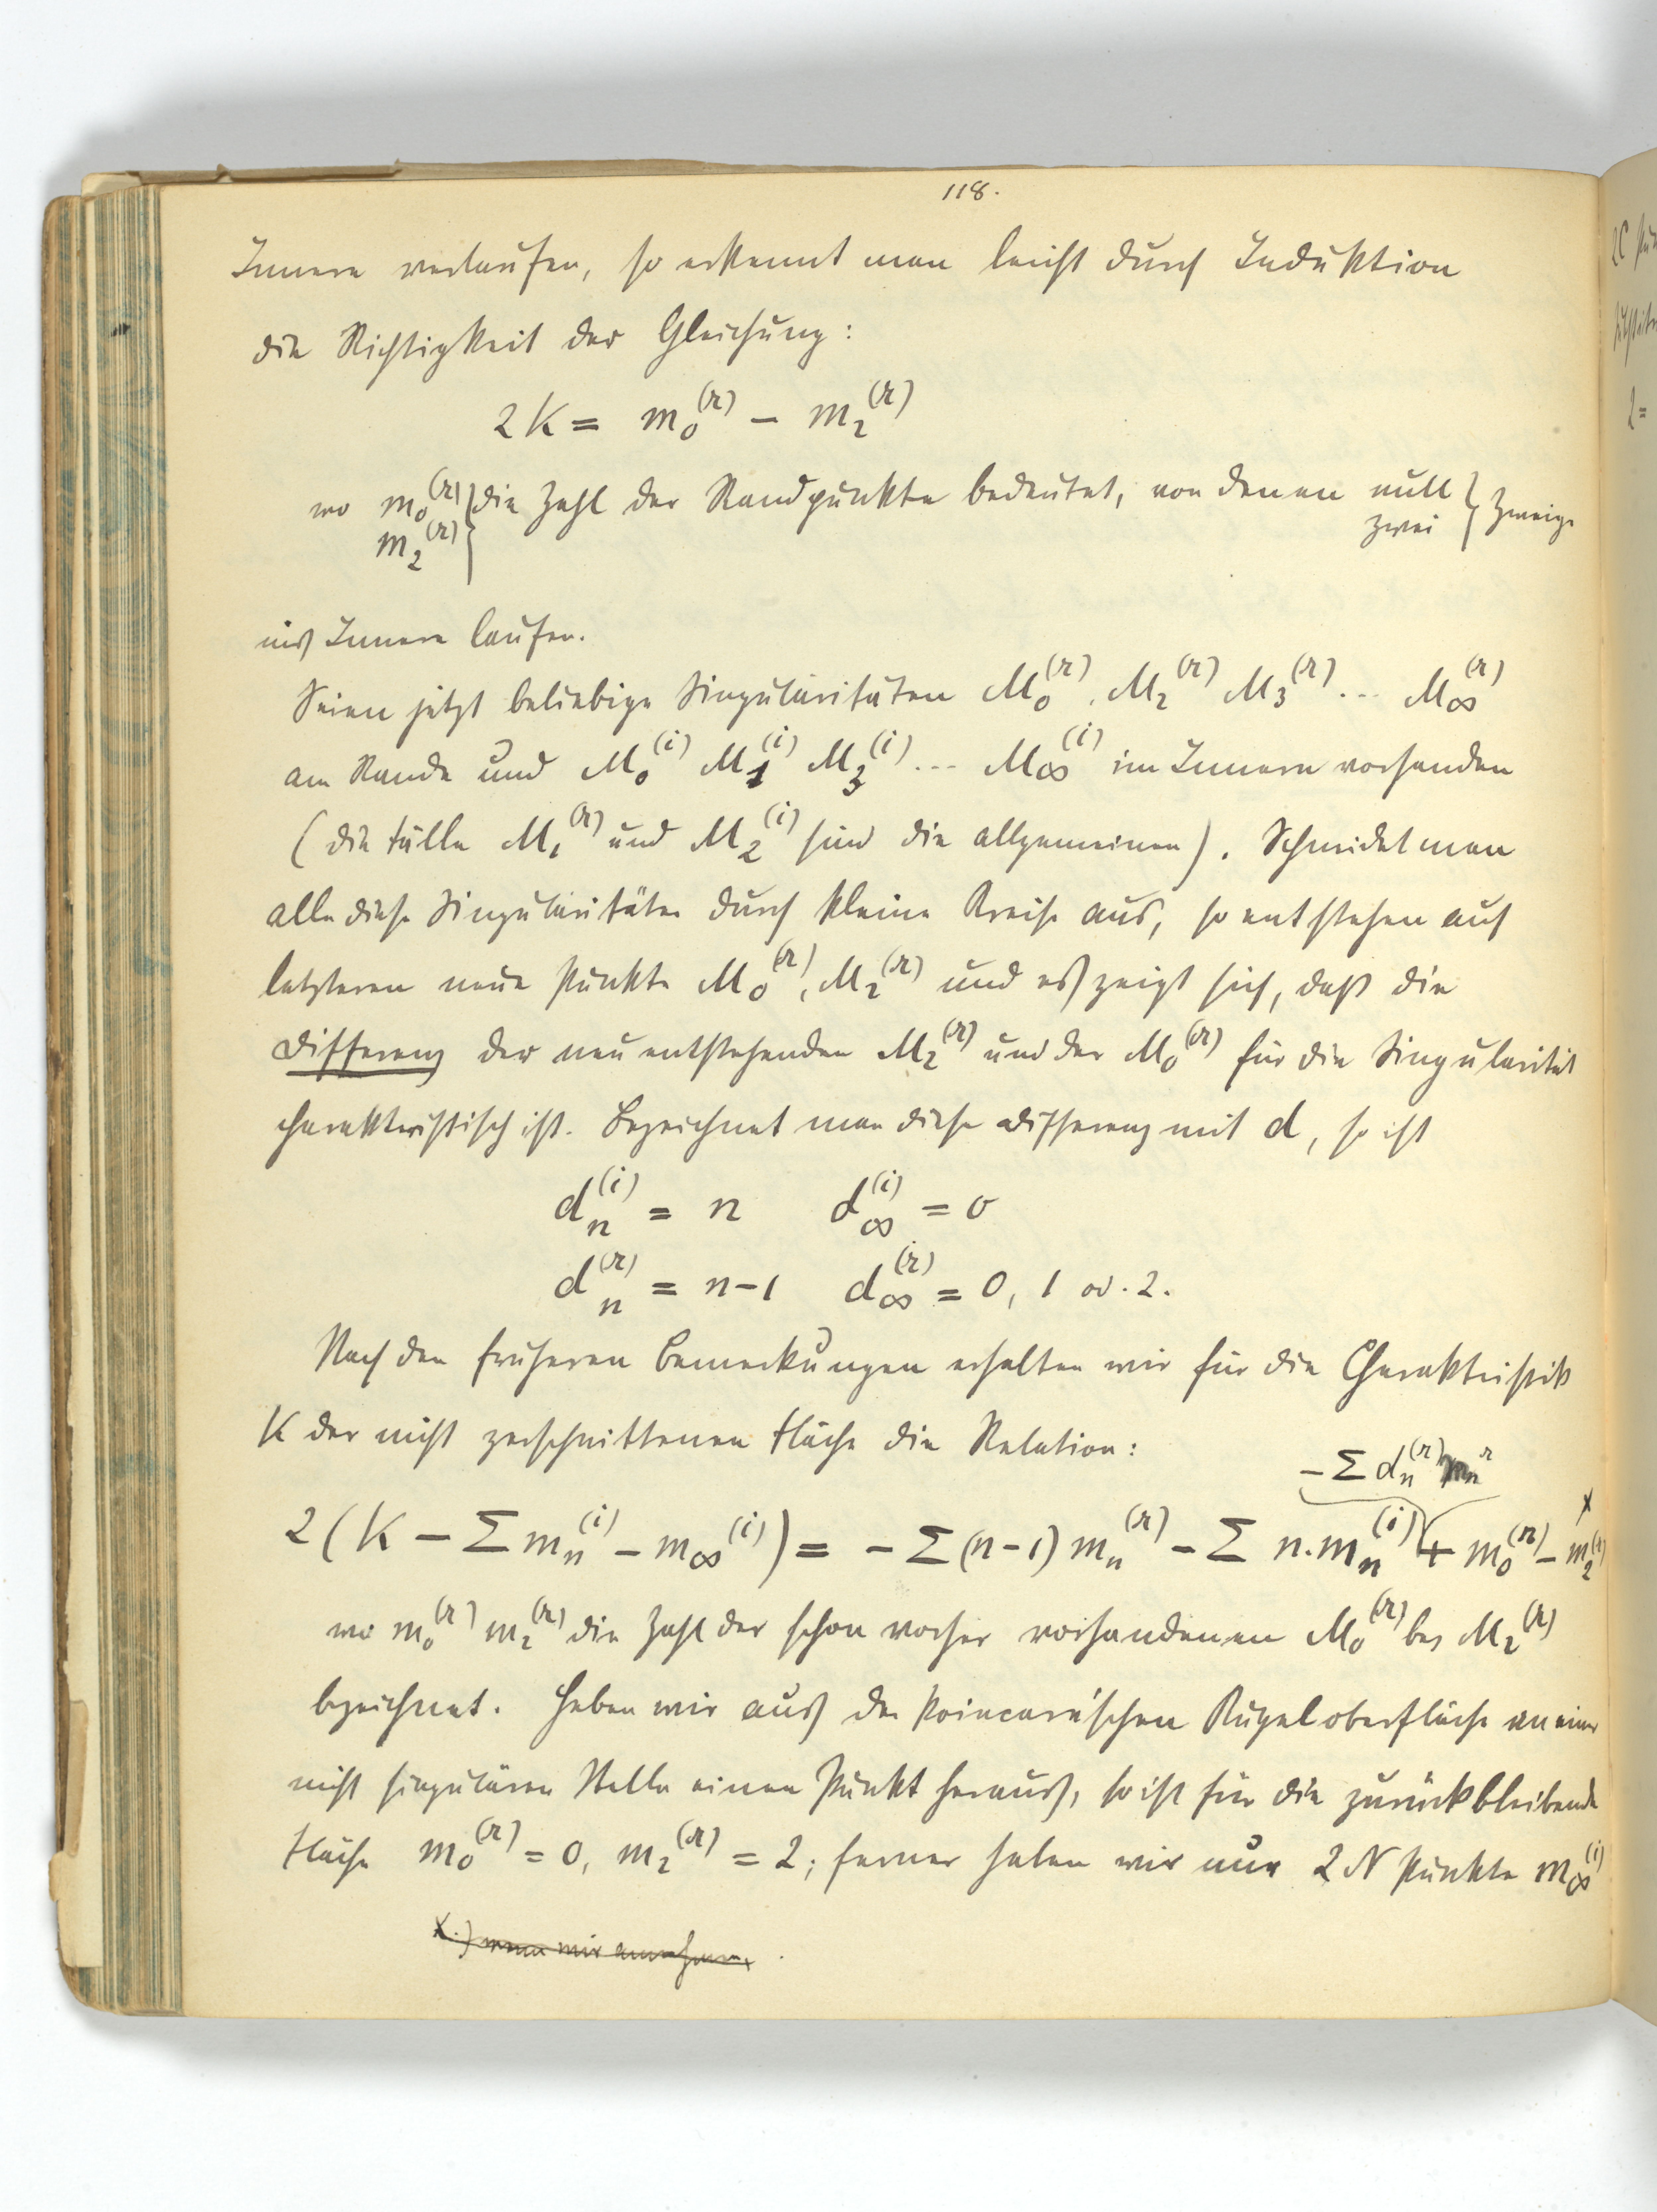 118.
Innere verlaufen, so erkennt man leicht durch Induktion
die Richtigkeit der Gleichung:
2K = m₀⁽ʳ⁾ – m₂⁽ʳ⁾
wo m₀⁽ʳ⁾ } die Zahl der Randpunkte bedeutet, von denen null } Zweige
m₂⁽ʳ⁾ zwei
ins Innere laufen.
Seien jetzt beliebige Singularitäten M₀⁽ʳ⁾, M₂⁽ʳ⁾ M₃⁽ʳ⁾ ... M∞⁽ʳ⁾
am Rande und M₀⁽ⁱ⁾ M₁⁽ⁱ⁾ M₃⁽ⁱ⁾ ... M∞⁽ⁱ⁾ im Innern vorhanden
(die Fälle M₁⁽ʳ⁾ und M₂⁽ⁱ⁾ sind die allgemeinen). Schneidet man
alle diese Singularitäten durch kleine Kreise aus, so entstehen auf
letzteren neue Punkte M₀⁽ʳ⁾, M₂⁽ʳ⁾ und es zeigt sich, daß die
Differenz der neu entstehenden M₂⁽ʳ⁾ und der M₀⁽ʳ⁾ für die Singularität
charakteristisch ist. Bezeichnet man diese Differenz mit d, so ist
dₙ⁽ⁱ⁾ = n d∞⁽ⁱ⁾ = 0
dₙ⁽ʳ⁾ = n–1 d∞⁽ʳ⁾ = 0, 1 od. 2.
Nach den früheren Bemerkungen erhalten wir für die Charakteristik
K der nicht zerschnittenen Fläche die Relation:
– Σ dₙ⁽ʳ⁾ mₙʳ
2(K – Σ mₙ⁽ⁱ⁾ – m∞⁽ⁱ⁾) = – Σ (n–1) mₙ⁽ʳ⁾ – Σ n.mₙ⁽ⁱ⁾ + m₀⁽ʳ⁾ – m₂⁽ʳ⁾ x
wo m₀⁽ʳ⁾ m₂⁽ʳ⁾ die Zahl der schon vorher vorhandenen M₀⁽ʳ⁾ bez M₂⁽ʳ⁾
bezeichnet. Heben wir aus der Poincaré'schen Kugeloberfläche an einer
nicht singulären Stelle einen Punkt heraus, so ist für die zurückbleibende
Fläche m₀⁽ʳ⁾ = 0, m₂⁽ʳ⁾ = 2; ferner haben wir nur 2N Punkte m∞⁽ⁱ⁾
x.) wenn wir annehmen,